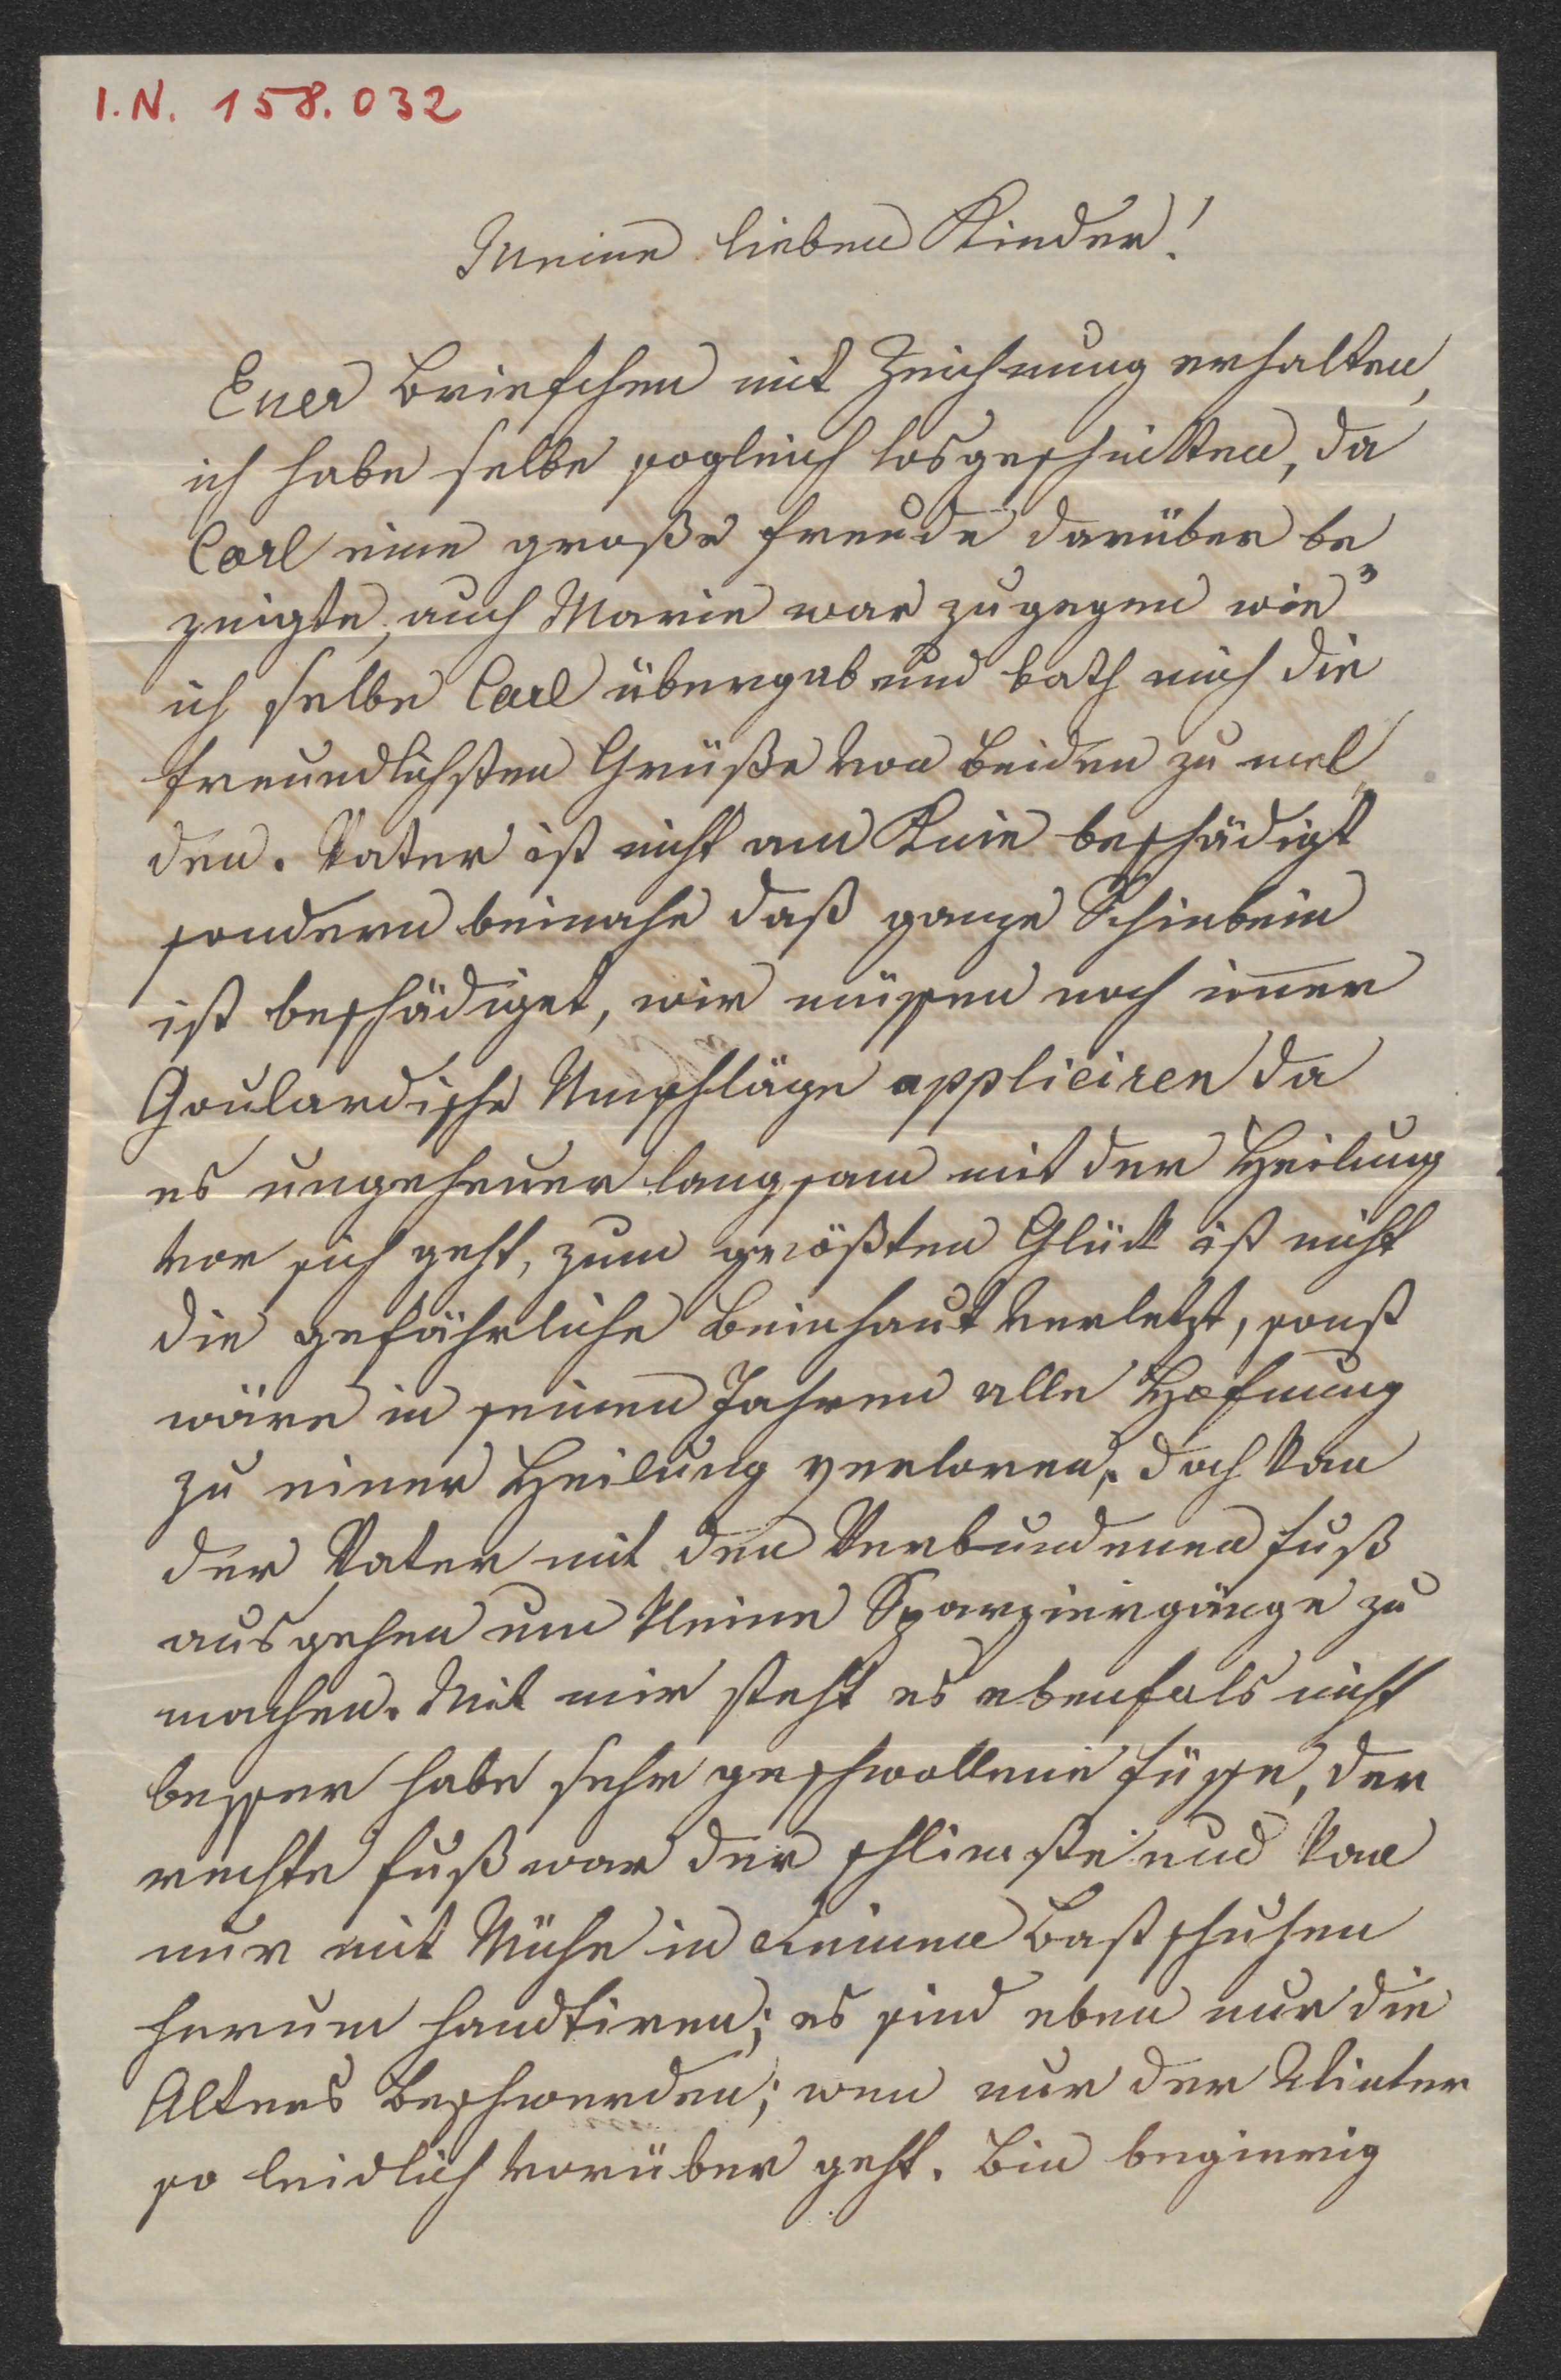 I.N. 158.032
Meine lieben Kinder!
Euer Briefchen mit Zeichnung erhalten,
ich habe selbe sogleich losgeschnitten, da
Carl eine große Freude darüber be
zeigte, auch Marie war zugegen wie
ich selbe Carl übergab und bath mich die
freundlichsten Grüße von Beiden zu mel„
den. Vater ist nicht am Knie beschädigt
sondern beinahe daß ganze Schinbein
ist beschädiget, wir müssen noch im̅er
Goulardische Umschläge appliciren da
es ungeheuer langsam mit der Heilung
vor sich geht, zum größten Glück ist nicht
die gefährliche Beinhaut verletzt, sonst
wäre in seinen Jahren alle Hofnung
zu einer Heilung verloren, doch kan
der Vater mit den Verbundenen Fuß
ausgehen um kleine Sparziergänge zu
machen. Mit mir steht es ebenfals nicht
besser habe sehr geschwollene Füsse, der
rechte Fuß war der schlimste und kan
nur mit Mühe in Bastschuhen
herum handtiren; es sind eben nur die
Alters Beschwerden; wen nur der Winter
so leidlich vorüber geht. Bin begierig